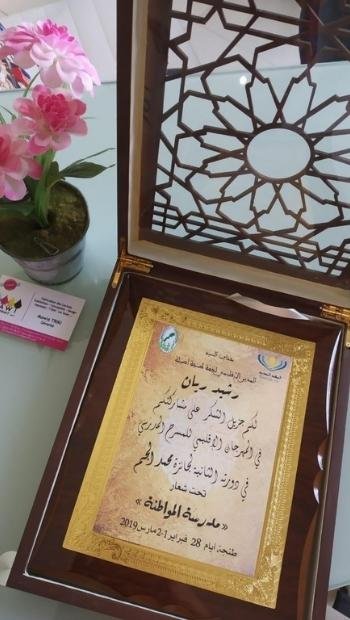 جناب السيد
المدير الإقليمي
رشيد ريان
لكم جزيل الشكر على مشاركتكم
في المهرجان الإقليمي للمسرح المدرسي
في دورته الثانية لجائزة محمد الجم
تحت شعار
« مدرسة المواطنة »
طنجة أيام 28 فبراير 1-2 مارس 2019